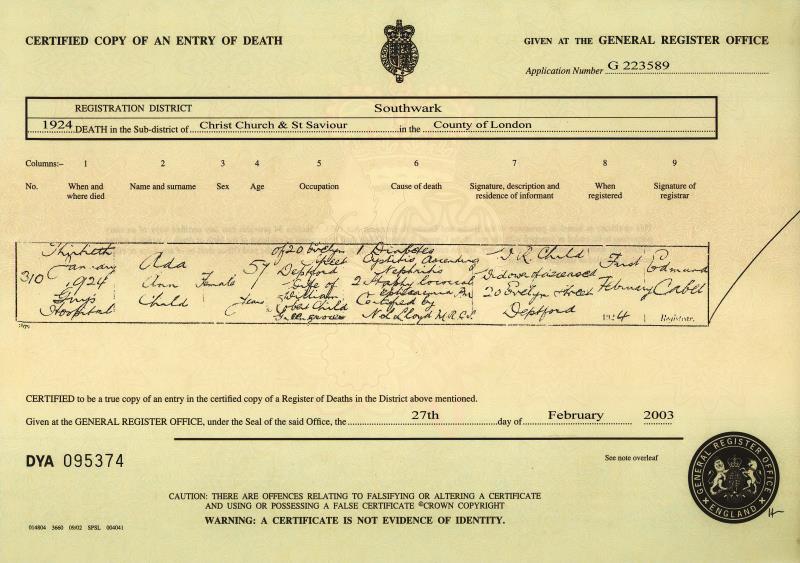 CERTIFIED COPY OF AN ENTRY OF DEATH
GIVEN AT THE GENERAL REGISTER OFFICE
Application Number G 223589
REGISTRATION DISTRICT Southwark
1924 DEATH in the Sub-district of Christ Church & St Saviour in the County of London
Columns:- 1 2 3 4 5 6 7 8 9
No. When and where died Name and surname Sex Age Occupation Cause of death Signature, description and residence of informant When registered Signature of registrar
310
Thirtieth
January
1924
Guys
Hospital
Ada
Ann
Child
Female
57
Years
of 20 Evelyn
Street
Deptford
Wife of
William
Child
1 Diabetes
Cystitis Ascending
Nephritis
2
Certified by
Lloyd M.R.C.S.
Child
Widower of deceased
20 Evelyn Street
Deptford
First
February
1924
Edmund
Registrar.
CERTIFIED to be a true copy of an entry in the certified copy of a Register of Deaths in the District above mentioned.
Given at the GENERAL REGISTER OFFICE, under the Seal of the said Office, the 27th day of February 2003
DYA 095374
See note overleaf
CAUTION: THERE ARE OFFENCES RELATING TO FALSIFYING OR ALTERING A CERTIFICATE
AND USING OR POSSESSING A FALSE CERTIFICATE ©CROWN COPYRIGHT
WARNING: A CERTIFICATE IS NOT EVIDENCE OF IDENTITY.
014804 3660 09/02 SPSL 004041
GENERAL REGISTER OFFICE
ENGLAND